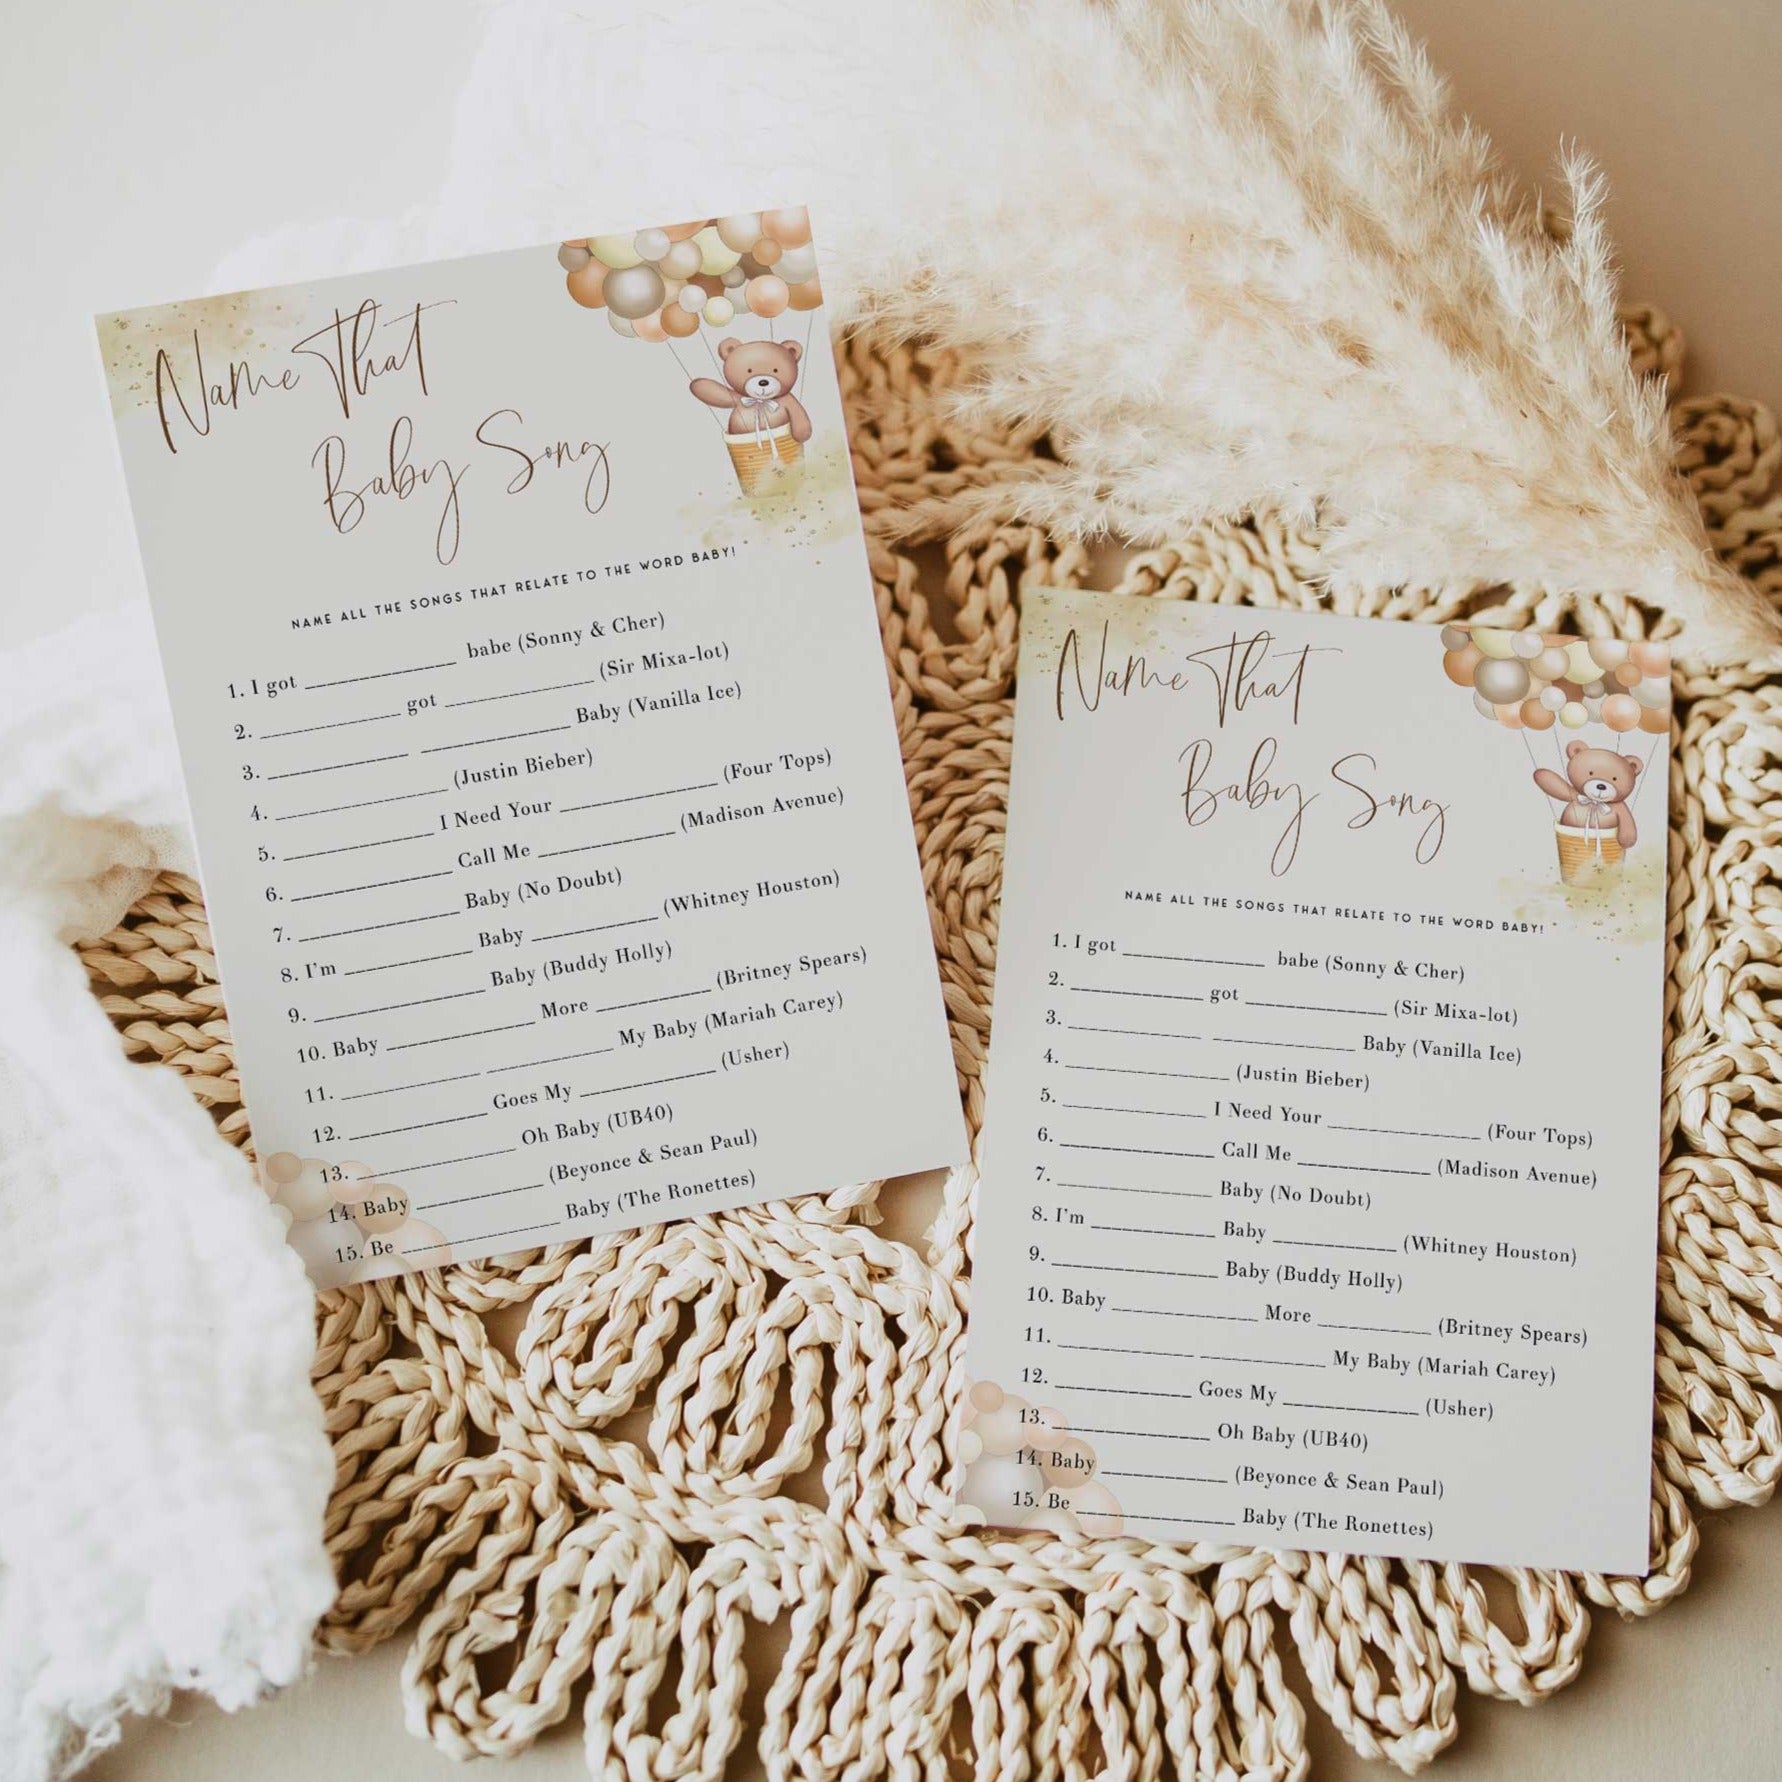 Name That
Baby Song
NAME ALL THE SONGS THAT RELATE TO THE WORD BABY!
1. I got ______________ babe (Sonny & Cher)
2. _____________ got ______________ (Sir Mixa-lot)
3. _____________ ______________ Baby (Vanilla Ice)
4. ________________ (Justin Bieber)
5. ______________ I Need Your _______________ (Four Tops)
6. _______________ Call Me _____________ (Madison Avenue)
7. _______________ Baby (No Doubt)
8. I'm ____________ Baby ____________ (Whitney Houston)
9. ________________ Baby (Buddy Holly)
10. Baby ______________ More ___________ (Britney Spears)
11. _____________ ____________ My Baby (Mariah Carey)
12. _____________ Goes My _____________ (Usher)
13. _______________ Oh Baby (UB40)
14. Baby ____________ (Beyonce & Sean Paul)
15. Be _______________ Baby (The Ronettes)
Name That
Baby Song
NAME ALL THE SONGS THAT RELATE TO THE WORD BABY!
1. I got ______________ babe (Sonny & Cher)
2. _____________ got ______________ (Sir Mixa-lot)
3. _____________ ______________ Baby (Vanilla Ice)
4. ________________ (Justin Bieber)
5. ______________ I Need Your _______________ (Four Tops)
6. _______________ Call Me _____________ (Madison Avenue)
7. _______________ Baby (No Doubt)
8. I'm ____________ Baby ____________ (Whitney Houston)
9. ________________ Baby (Buddy Holly)
10. Baby ______________ More ___________ (Britney Spears)
11. _____________ ____________ My Baby (Mariah Carey)
12. _____________ Goes My _____________ (Usher)
13. _______________ Oh Baby (UB40)
14. Baby ____________ (Beyonce & Sean Paul)
15. Be _______________ Baby (The Ronettes)